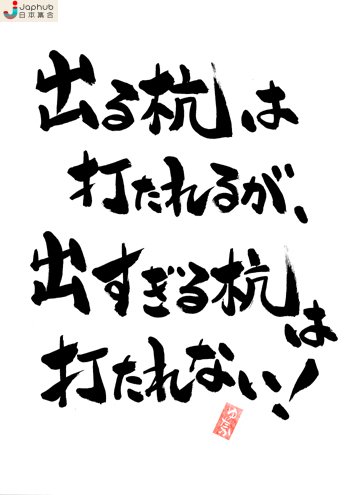 Japhub
日本集合
出る杭は
打たれるが、
出すぎる杭は
打たれない!
ゆたか